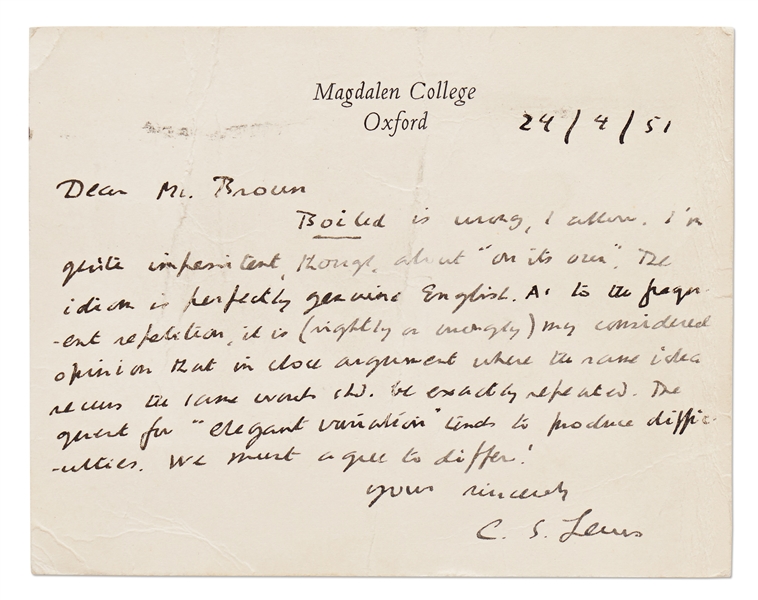 Magdalen College
Oxford
24/4/51
Dear Mr. Brown
Boiled is wrong, I allow. I'm
quite impenitent, though, about "on its own". The
idiom is perfectly genuine English. As to the frequ-
-ent repetition, it is (rightly or wrongly) my considered
opinion that in close argument where the same idea
recurs the same words shd. be exactly repeated. The
quest for "elegant variation" tends to produce diffic-
-ulties. We must agree to differ!
yours sincerely
C. S. Lewis